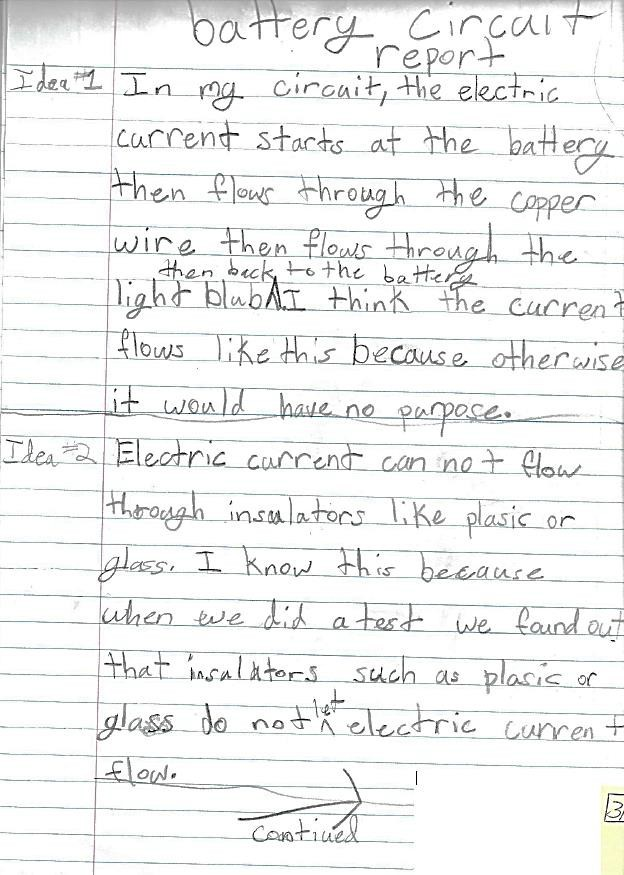 battery circuit
report
Idea #1 In my circuit, the electric
current starts at the battery
then flows through the copper
wire then flows through the
then back to the battery
light blub^I think the current
flows like this because otherwise
it would have no purpose.
Idea #2 Electric current can not flow
through insulators like plasic or
glass. I know this because
when we did a test we found out
that insulators such as plasic or
let
glass do not ^ electric current
flow.
contiued
3